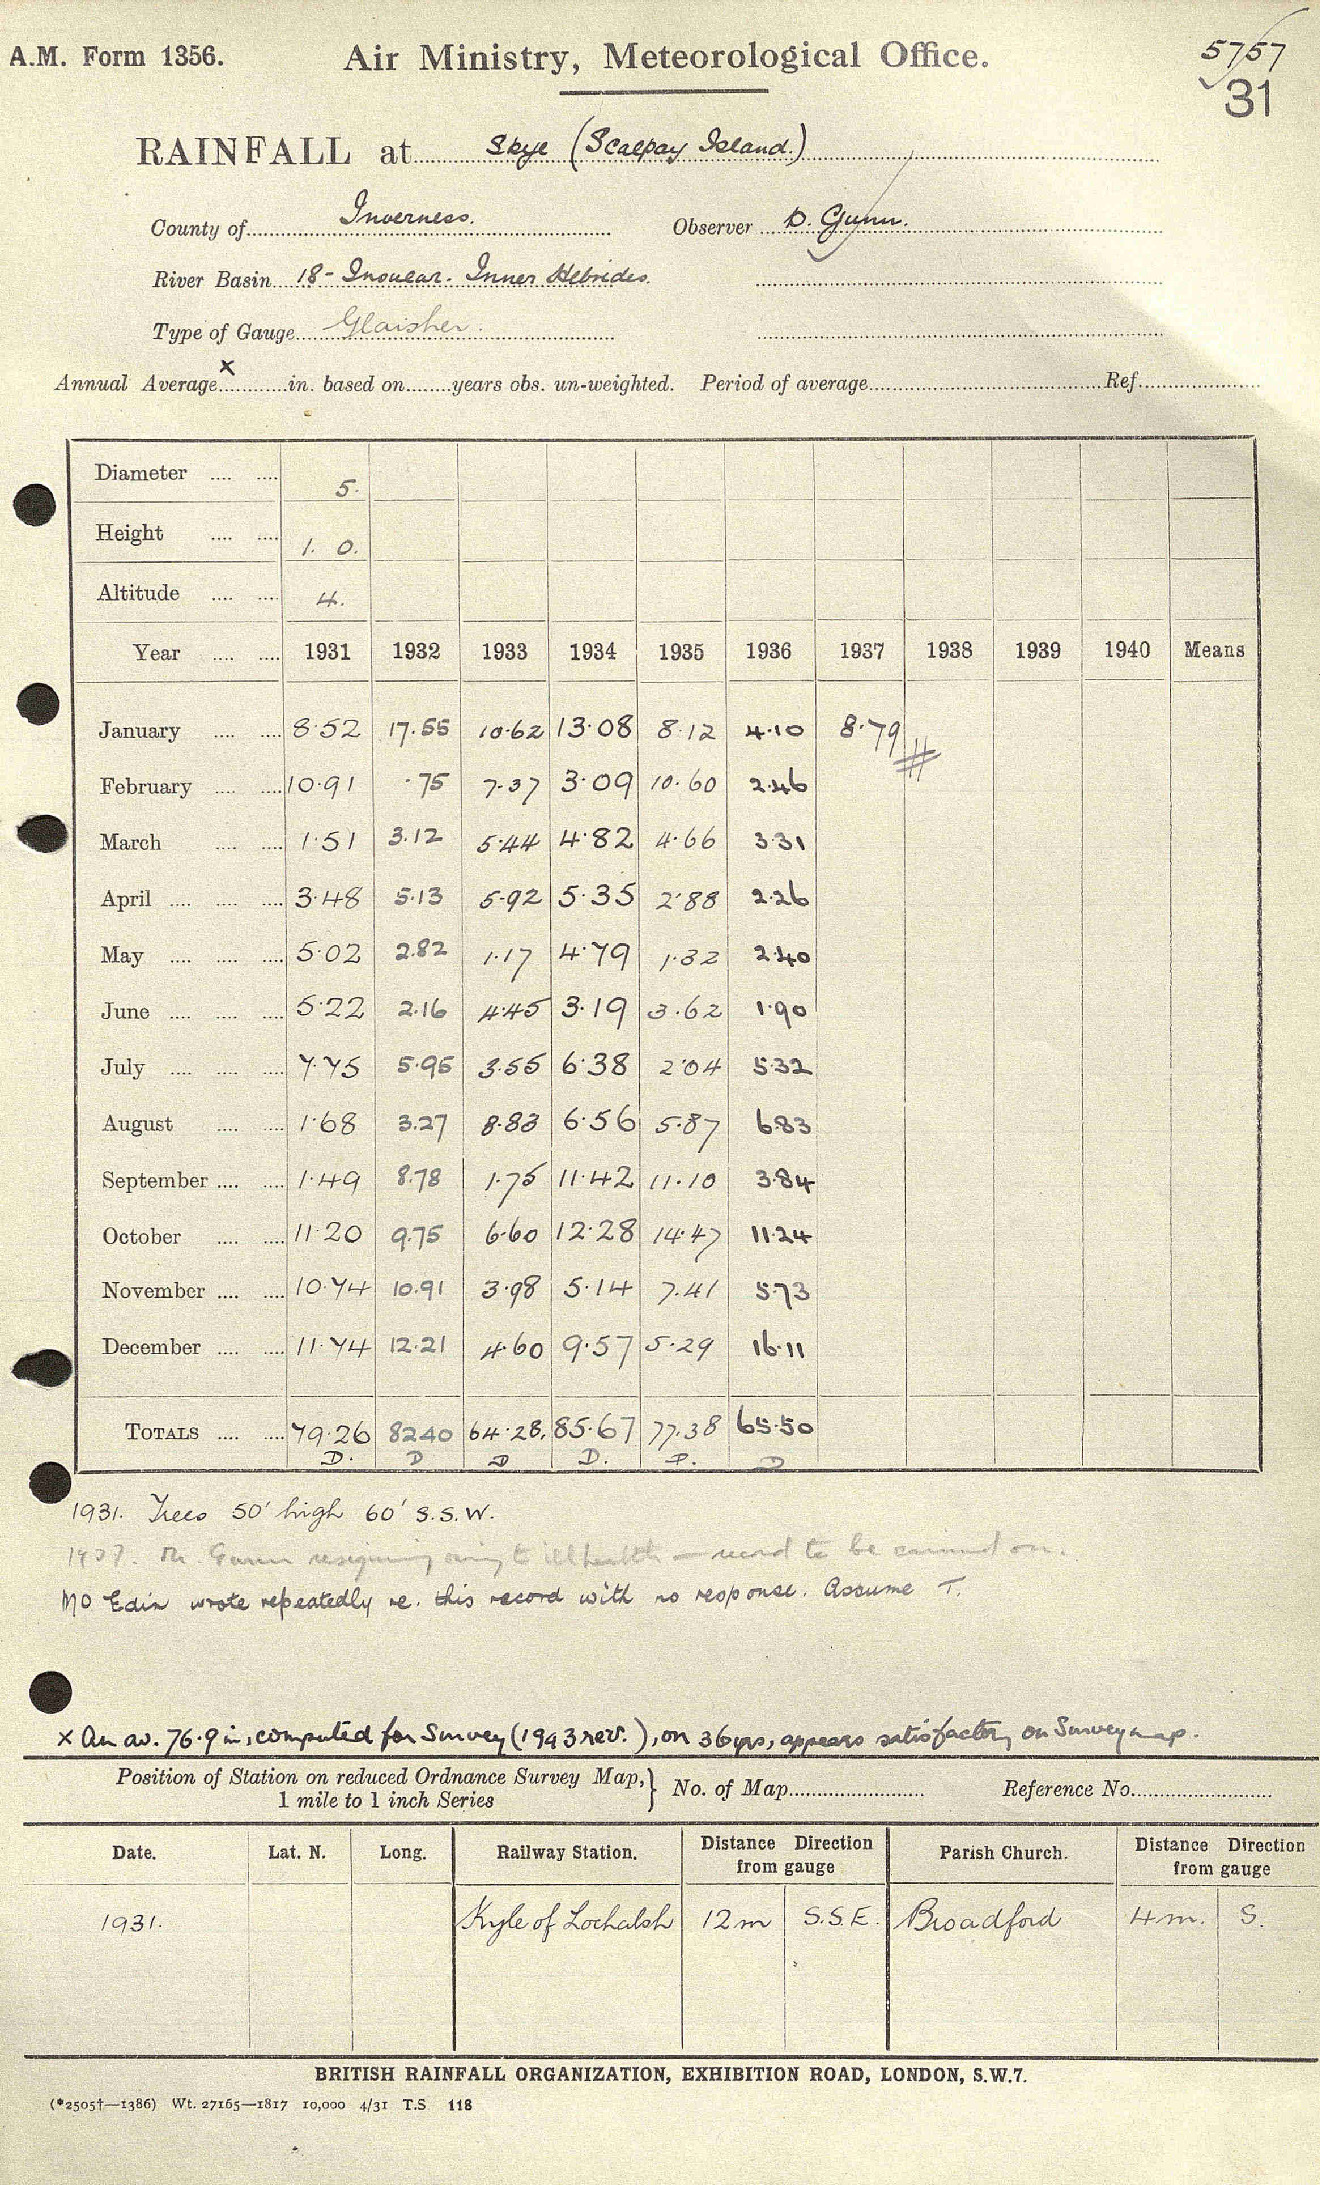 A.M. Form 1356. Air Ministry, Meteorological Office. 5757
31
RAINFALL at Skye (Scalpay Island.)
County of Inverness. Observer D. Gunn.
River Basin 18 - Insular. Inner Hebrides.
Type of Gauge Glaisher.
Annual Average x in. based on years obs. un-weighted. Period of average Ref
Diameter 5.
Height 1. 0.
Altitude 4.
Year 1931 1932 1933 1934 1935 1936 1937 1938 1939 1940 Means
January 8.52 17.55 10.62 13.08 8.12 4.10 8.79
February 10.91 .75 7.37 3.09 10.60 2.46
March 1.51 3.12 5.44 4.82 4.66 3.31
April 3.48 5.13 5.92 5.35 2.88 2.26
May 5.02 2.82 1.17 4.79 1.32 2.40
June 5.22 2.16 4.45 3.19 3.62 1.90
July 7.75 5.95 3.55 6.38 2.04 5.32
August 1.68 3.27 8.83 6.56 5.87 6.83
September 1.49 8.78 1.75 11.42 11.10 3.84
October 11.20 9.75 6.60 12.28 14.47 11.24
November 10.74 10.91 3.98 5.14 7.41 5.73
December 11.74 12.21 4.60 9.57 5.29 16.11
TOTALS 79.26 82.40 64.28. 85.67 77.38 65.50
D. D D D. D. D
1931. Trees 50' high 60' S.S.W.
1937. Mr. Gunn resigning owing to ill health — record to be carried on.
MO Edin wrote repeatedly re. this record with no response. Assume T.
x An av. 76.9 in, computed for Survey (1943 rev.), on 36 yrs, appears satisfactory on Survey map.
Position of Station on reduced Ordnance Survey Map, } No. of Map Reference No.
1 mile to 1 inch Series
Date. Lat. N. Long. Railway Station. Distance Direction from gauge Parish Church. Distance Direction from gauge
1931. Kyle of Lochalsh 12m S.S.E. Broadford 4m. S.
BRITISH RAINFALL ORGANIZATION, EXHIBITION ROAD, LONDON, S.W.7.
(*2505†—1386) Wt. 27165—1817 10,000 4/31 T.S 118